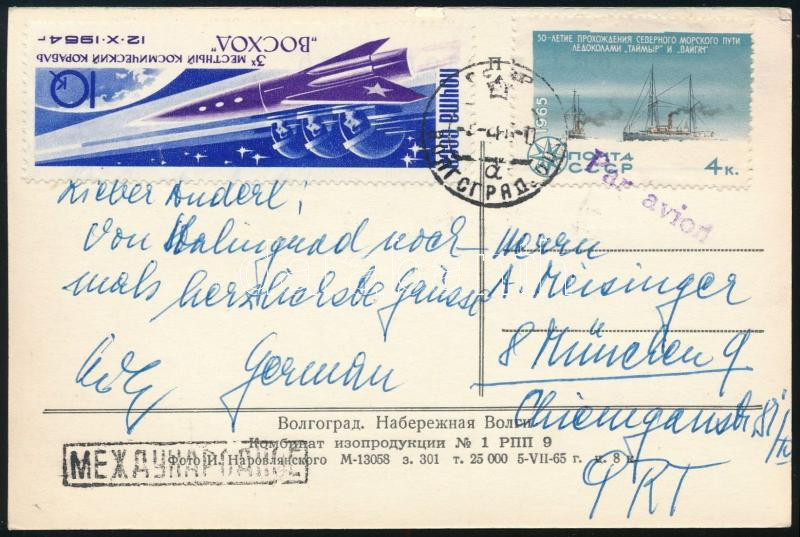 12·X·1964г
3х МЕСТНЫЙ КОСМИЧЕСКИЙ КОРАБЛЬ
"ВОСХОД"
10к
почта СССР
50-ЛЕТИЕ ПРОХОЖДЕНИЯ СЕВЕРНОГО МОРСКОГО ПУТИ
ЛЕДОКОЛАМИ "ТАЙМЫР" И "ВАЙГАЧ"
1965
ПОЧТА
СССР
4к.
Par avion
ВОЛГОГРАД
Lieber Anderl!
Von Stalingrad noch-
mals herzlichste Grüsse
German
Herrn
A. Meisinger
8 München 9
Chiemgaustr.
ФРГ
Волгоград. Набережная Волги
Комбинат изопродукции № 1 РПП 9
Фото И. Наровлянского М-13058 з. 301 т. 25 000 5-VII-65 г. ц. 8 к.
МЕЖДУНАРОДНОЕ